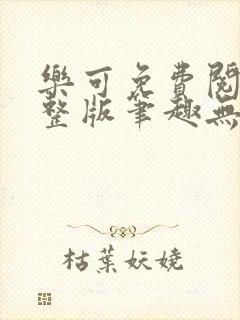 樂可免費閱
整版筆趣無
枯葉妖嬈